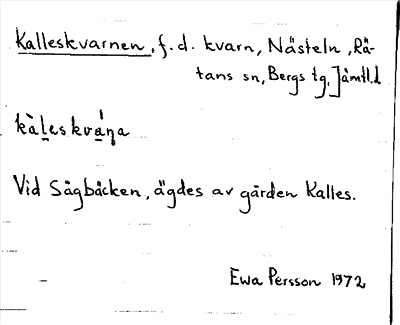 Kalleskvarnen, f.d. kvarn, Nästeln, Rä-
tans sn, Bergs tg, Jämtl.l
kàlẹskvạ́ŋa
Vid Sågbäcken, ägdes av gården Kalles.
Ewa Persson 1972